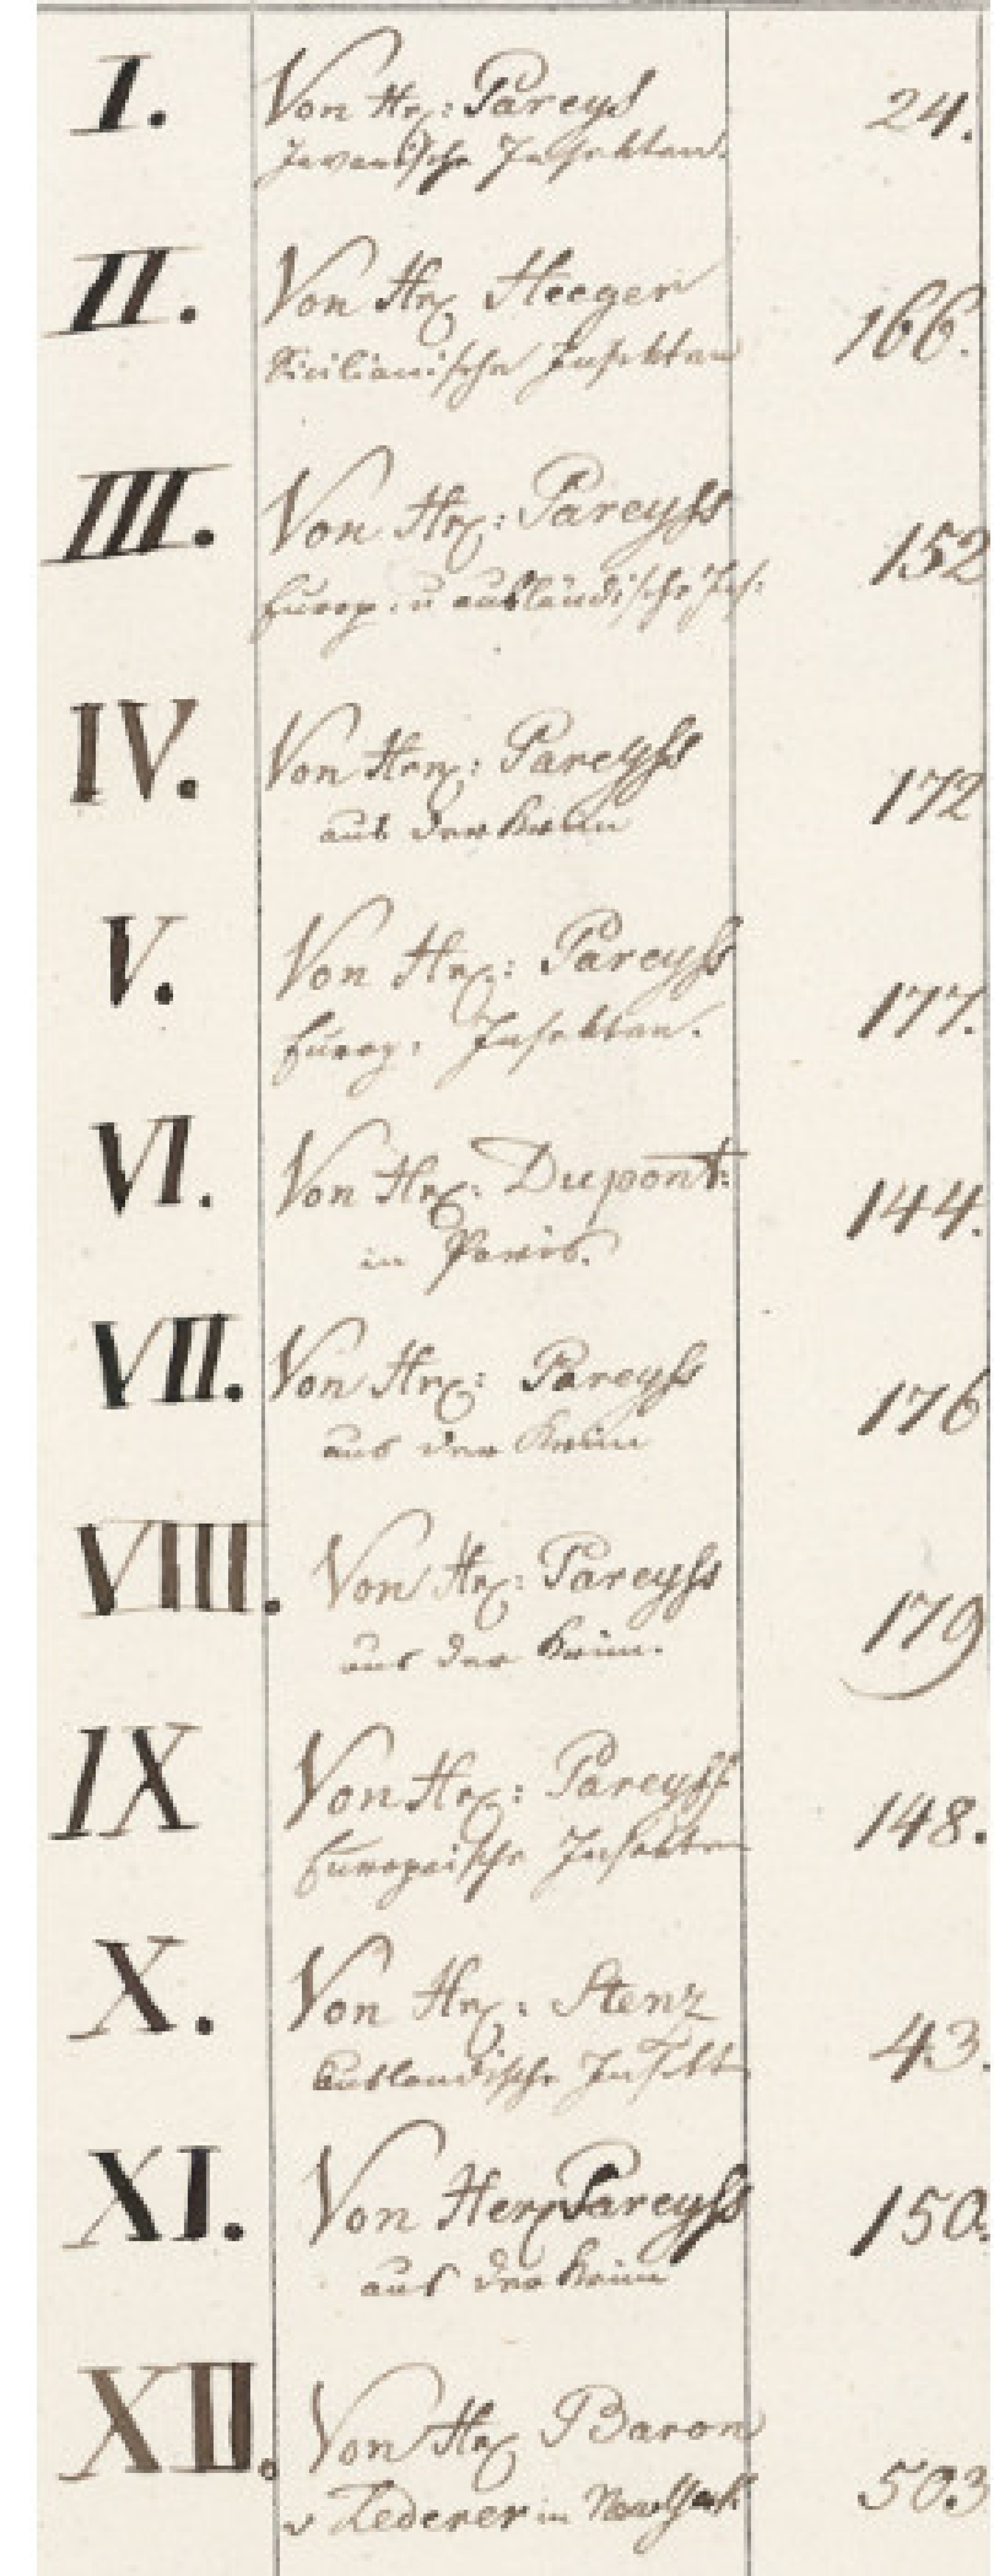 I. Von Hr: Pareyß 24.
Javanische Insekten.
II. Von Hr Heeger 166.
Sicilianische Insekten
III. Von Hr: Pareyss 152
Europ. u ausländische Ins:
IV. Von Hrn: Pareyss 172
aus der Krim
V. Von Hr: Pareyss 177.
Europ: Insekten.
VI. Von Hr: Dupont: 144.
in Paris.
VII. Von Hr: Pareyss 176
aus der Krim
VIII. Von Hr: Pareyss 179
aus der Krim.
IX Von Hr: Pareyss 148.
Europäische Insekten
X. Von Hr: Stenz 43.
Ausländische Insekt
XI. Von Herr Pareyss 150.
aus der Krim
XII. Von Hr Baron 503
v Lederer in NewYork